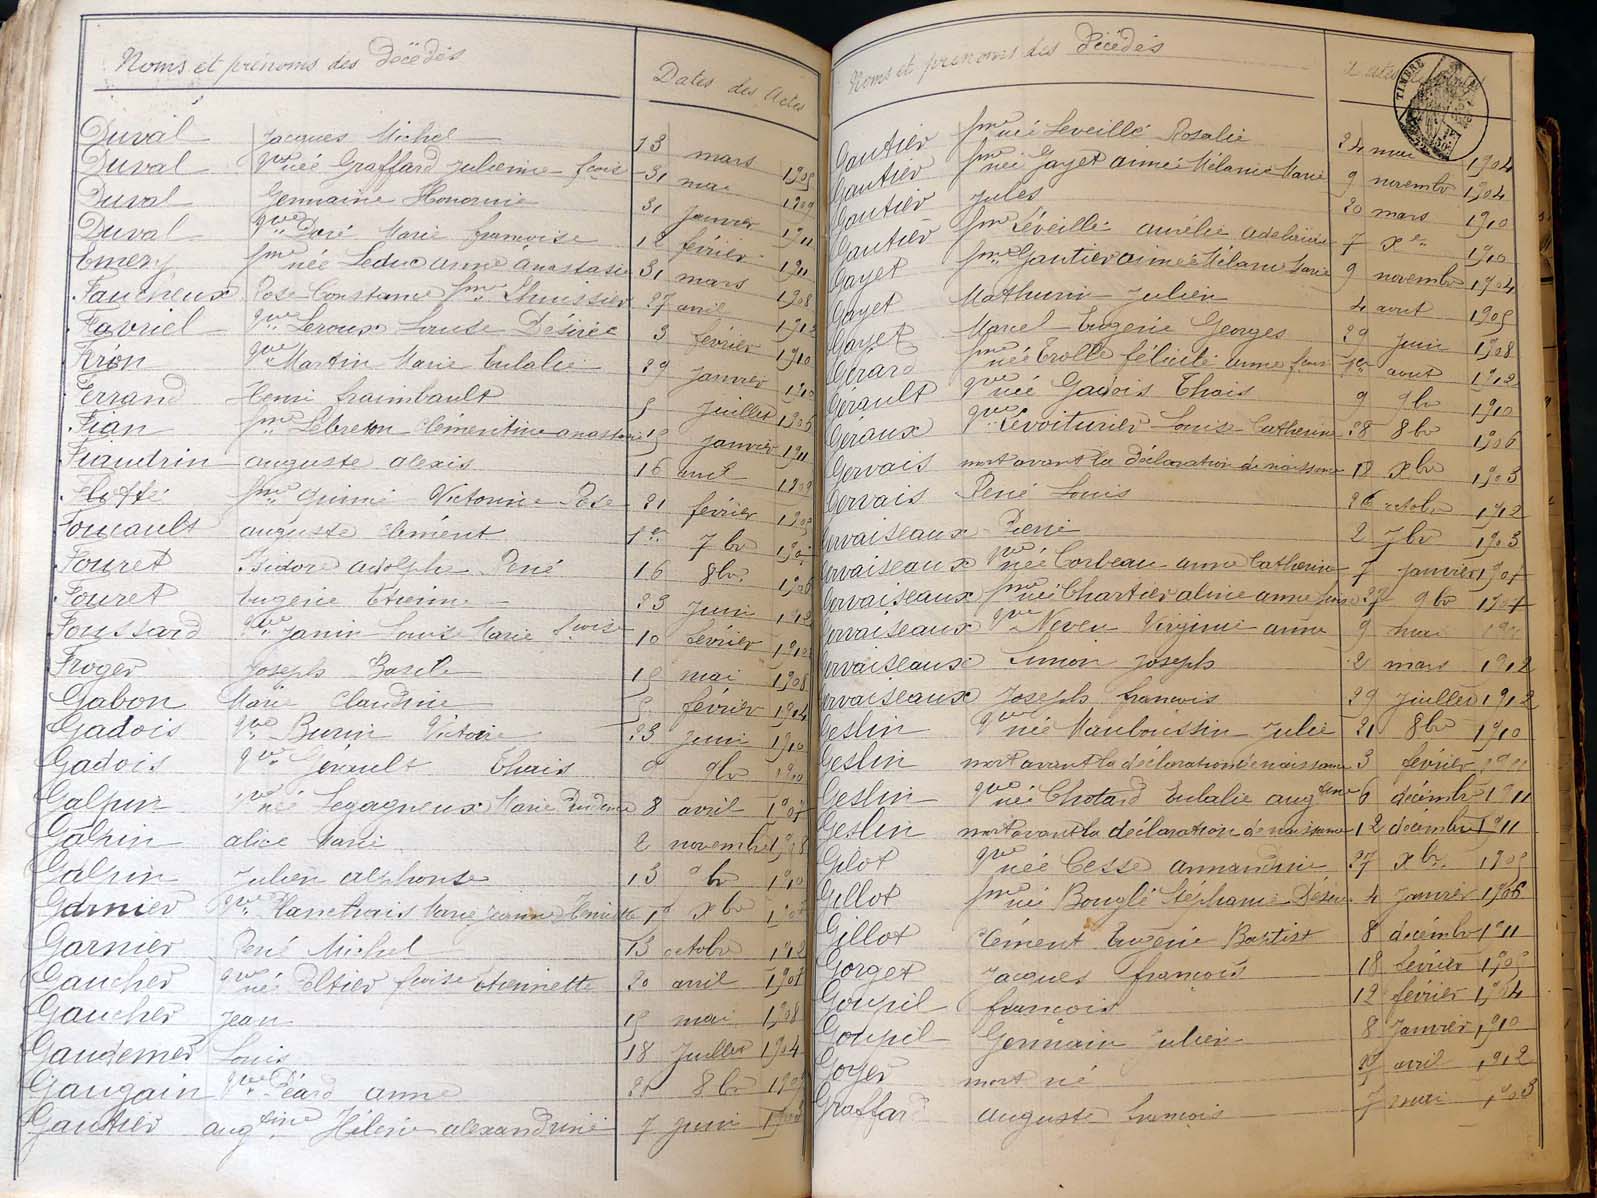 Noms et prénoms des Décédés
Dates des Actes
Duval Jacques Michel 13 mars 1905
Duval vve née Graffard Julienne fçoise 31 mai 1909
Duval Germaine Honorine 31 Janvier 1911
Duval vve Doré Marie françoise 12 février 1911
Emery fme née Leduc anne anastasie 31 mars 1908
Faucheux Rose Constance fme Lhuissier 27 avril 1912
Favriel vve Leroux Louise Désirée 3 février 1910
Féron vve Martin Marie Eulalie 29 Janvier 1910
Ferrand Henri Fraimbault 5 Juillet 1906
Fian fme Lebreton Clémentine anastasie 15 Janvier 1911
Fiaudrin auguste alexis 16 avril 1909
fme Guimé Victorine Rose 21 février
Foucault auguste Clément 1er 7bre
Fouret Isidore adolphe René 16 8bre 1906
Fouret Eugène Etienne 23 Juin 1912
Foussard vve Janin Louise Marie fçoise 10 février 1912
Froger Joseph Basile 15 mai 1908
Gabon Marie Claudine 5 février 1904
Gadois vve Burin Victoire 23 Juin 1910
Gadois vve Gérault Thaïs 9 9bre 1910
Galpin vve née Legagneux Marie Prudence 8 avril
Galpin alice Marie 2 novembre 1908
Galpin Julien alphonse 13 9bre 1910
Garnier vve Hanthais Marie Jeanne Henriette 15 xbre
Garnier René Michel 13 octobre 1912
Gaucher vve née Peltier fçoise Etiennette 20 avril 1908
Gaucher Jean 15 mai 1908
Gaudemer Louis 18 Juillet 1904
Gaugain vve Péard anne 21 8bre
Gautier augtine Hélène alexandrine 7 Juin 1908
Noms et prénoms des Décédés
Dates
TIMBRE
Gautier fme née Leveillé Rosalie 24 mai 1904
Gautier fme née Gayet aimée Mélanie Marie 9 novembre 1904
Gautier Jules 20 mars 1910
Gautier fme Léveillé aurélie adelaïde 7 xbre 1910
Gayet fme Gautier aimée Mélanie Marie 9 novembre 1904
Gayet Mathurin Julien 4 aout 1905
Gayet Marcel Eugène Georges 29 Juin 1908
Gérard fme née Trolle félicité anne fçoise 1er aout 1912
Gérault vve née Gadois Thaïs 9 9bre 1910
Géraux vve Levoiturier Louise Catherine 28 8bre 1906
Gervais mort avant la déclaration de naissance 18 xbre 1903
Gervais René Louis 26 octobre 1912
Gervaiseaux René 2 7bre 1903
Gervaiseaux vve née Corbeau anne Catherine 7 Janvier 1907
Gervaiseaux fme née Chartier aline anne Louise 27 9bre 1907
Gervaiseaux vve Neveu Virginie anne 9 mai
Gervaiseaux Simon Joseph 2 mars 1912
Gervaiseaux Joseph françois 29 Juillet 1912
Geslin vve née Mauboussin Julie 21 8bre 1910
Geslin mort avant la déclaration de naissance 3 février 1911
Geslin vve née Chotard Eulalie augtine 6 décembre 1911
Geslin mort avant la déclaration de naissance 12 décembre 1911
Gilot vve née Cesse armandine 27 xbre 1905
Gillot fme née Bouglé Stéphanie Désirée 4 Janvier 1906
Gillot Clément Eugène Baptiste 8 décembre 1911
Gorget Jacques françois 18 février 1905
Goupil françois 12 février 1904
Goupil Germain Julien 8 Janvier 1910
Goyer mort né 27 avril 1912
Graffard auguste françois 7 mai 1903